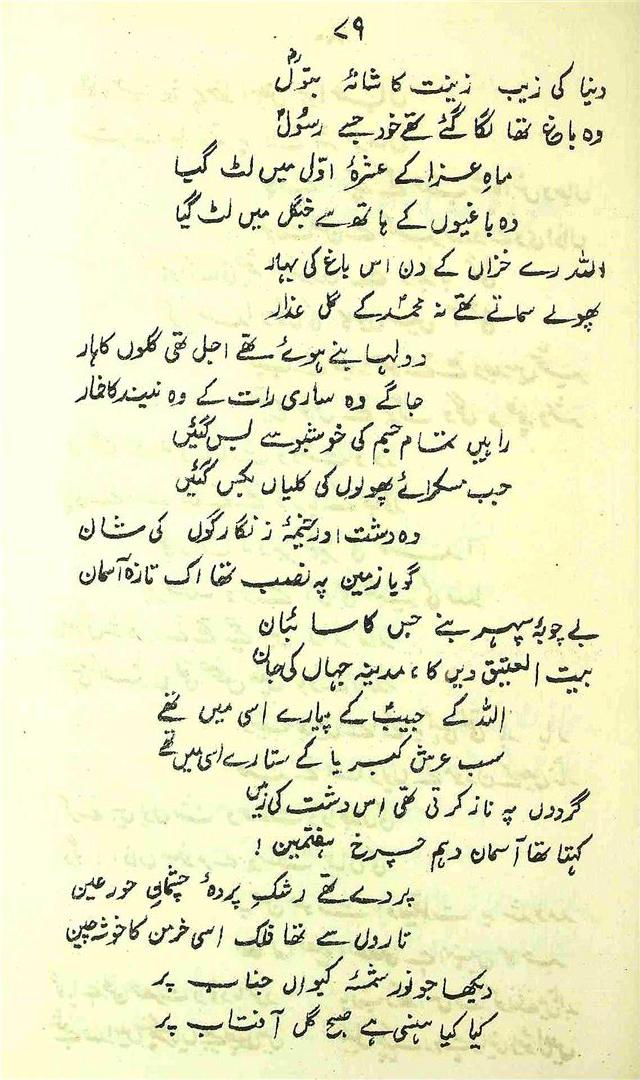 ۷۹
دنیا کی زیب زینت کاشانۂ بتولؑ
وہ باغ تھا لگا گئے تھے خود جسے رسولؐ
ماہِ عزا کے عشرۂ اوّل میں لٹ گیا
وہ باغیوں کے ہاتھ سے جنگل میں لٹ گیا
اللہ رے خزاں کے دن اس باغ کی بہار
پھولے سماتے تھے نہ محمدؐ کے گل عذار
دولہا بنے ہوئے تھے اجل تھی گلوں کا ہار
جاگے وہ ساری رات کے وہ نیند کا خمار
راہیں تمام جسم کی خوشبو سے بس گئیں
جب مسکرائے پھولوں کی کلیاں بکس گئیں
وہ دشت اور خیمۂ زنگارگوں کی شان
گویا زمین پہ نصب تھا اک تازہ آسمان
بے چوبۂ سپہر بنے جس کا سائبان
بیت العتیق دیں کا، مدینہ جہاں کی جان
اللہ کے حبیبؐ کے پیارے اسی میں تھے
سب عرش کبریا کے ستارے اسی میں تھے
گردوں پہ ناز کرتی تھی اس دشت کی زمیں
کہتا تھا آسمان دہم چرخ ہفتمین !
پردے تھے رشکِ پردۂ چشمانِ حور عین
تاروں سے تھا فلک اسی خرمن کا خوشہ چین
دیکھا جو نور شمسۂ کیواں جناب پر
کیا کیا ہنسی ہے صبح گل آفتاب پر